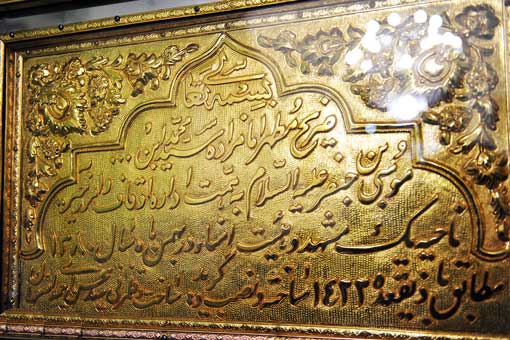 بسمه تعالی
ضریح مطهر امامزاده سید محمد ابن
موسی بن جعفر علیه السلام به همت اداره اوقاف و امور خیریه
ناحیه یک مشهد و هیئت امناء در بهمن ماه سال ۱۳۸۰
مطابق با ذیقعده ۱۴۲۲ ساخته و نصب گردید